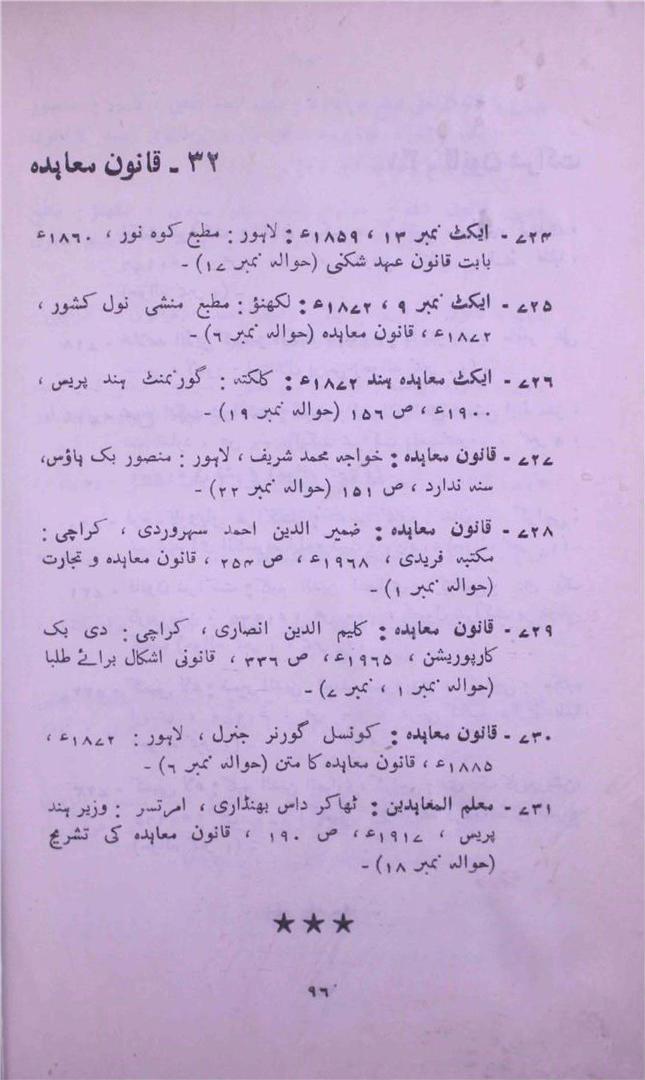 ۳۲ ـ قانون معاہدہ
۷۲۴ ـ ایکٹ نمبر ۱۳ ، ۱۸۵۹ء : لاہور : مطبع کوہ نور ، ۱۸۶۰ء
بابت قانون عہد شکنی (حوالہ نمبر ۱۷) ـ
۷۲۵ ـ ایکٹ نمبر ۹ ، ۱۸۷۲ء : لکھنؤ : مطبع منشی نول کشور ،
۱۸۷۲ء ، قانون معاہدہ (حوالہ نمبر ۶) ـ
۷۲۶ ـ ایکٹ معاہدہ ہند ۱۸۷۲ء : کلکتہ : گورنمنٹ ہند پریس ،
۱۹۰۰ء ، ص ۱۵۶ (حوالہ نمبر ۱۹) ـ
۷۲۷ ـ قانون معاہدہ : خواجہ محمد شریف ، لاہور : منصور بک ہاؤس،
سنہ ندارد ، ص ۱۵۱ (حوالہ نمبر ۲۲) ـ
۷۲۸ ـ قانون معاہدہ : ضمیر الدین احمد سہروردی ، کراچی :
مکتبہ فریدی ، ۱۹۶۸ء ، ص ۲۵۴ ، قانون معاہدہ و تجارت
(حوالہ نمبر ۱) ـ
۷۲۹ ـ قانون معاہدہ : کلیم الدین انصاری ، کراچی : دی بک
کارپوریشن ، ۱۹۶۵ء ، ص ۳۳۶ ، قانونی اشکال برائے طلبا
(حوالہ نمبر ۱ ، نمبر ۷) ـ
۷۳۰ ـ قانون معاہدہ : کونسل گورنر جنرل ، لاہور : ۱۸۷۲ء ،
۱۸۸۵ء ، قانون معاہدہ کا متن (حوالہ نمبر ۶) ـ
۷۳۱ ـ معلم المعاہدین : ٹھاکر داس بھنڈاری ، امرتسر : وزیر ہند
پریس ، ۱۹۱۷ء ، ص ۱۹۰ ، قانون معاہدہ کی تشریح
(حوالہ نمبر ۱۸) ـ
★★★
۹۶